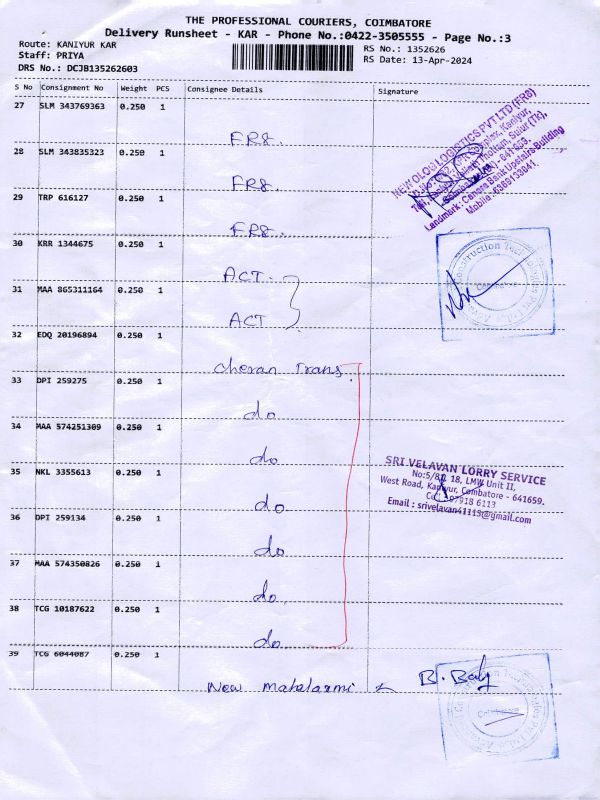 THE PROFESSIONAL COURIERS, COIMBATORE
Delivery Runsheet - KAR - Phone No.:0422-3505555 - Page No.:3
Route: KANIYUR KAR
RS No.: 1352626
Staff: PRIYA
RS Date: 13-Apr-2024
DRS No.: DCJB135262603
S No Consignment No Weight PCS Consignee Details Signature
27 SLM 343769363 0.250 1
FR8.
28 SLM 343835323 0.250 1
FR8.
29 TRP 616127 0.250 1
FR8.
30 KRR 1344675 0.250 1
ACT.
31 MAA 865311164 0.250 1
ACT
32 EDQ 20196894 0.250 1
cheran Trans.
33 DPI 259275 0.250 1
do
34 MAA 574251309 0.250 1
do
35 NKL 3355613 0.250 1
do
36 DPI 259134 0.250 1
do
37 MAA 574350826 0.250 1
do
38 TCG 10187622 0.250 1
do
39 TCG 6044087 0.250 1
New Mahalaxmi
NEW OLOG LOGISTICS PVT LTD (FR8)
Landmark: Canara Bank Upstairs Building
Mobile: 6369133041
SRI VELAVAN LORRY SERVICE
18, LMW Unit II,
West Road, Kaniyur, Coimbatore - 641659.
97918 6113
Email : srivelavan41113@gmail.com